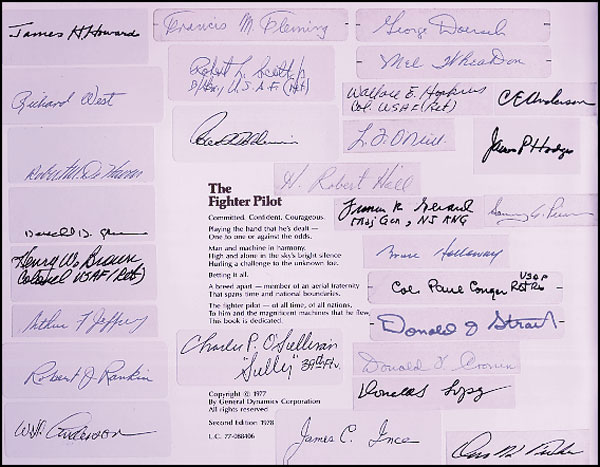 James H. Howard
Francis M. Fleming
George Doersch
Mel Wheadon
Richard West
Robert L. Scott Jr
U.S.A.F. (Ret)
Wallace E. Hopkins
Col. USAF (Ret)
C E Anderson
L. F. O'Neill
James P. Hodges
H. Robert Hall
Francis R. Gerard
Maj Gen, NJ ANG
Henry W. Brown
Colonel USAF (Ret)
Bruce Holloway
Col. Paul Conger
USAF
Arthur F Jeffrey
Donald J Strait
Charles P. O'Sullivan
"Sully" 39th Ftr.
Robert J. Rankin
W.H. Anderson
James C. Ince
The
Fighter Pilot
Committed. Confident. Courageous.
Playing the hand he's dealt —
One to one or against the odds.
Man and machine in harmony.
High and alone in the sky's bright silence
Hurling a challenge to the unknown foe.
Betting it all.
A breed apart — member of an aerial fraternity
That spans time and national boundaries.
The fighter pilot — of all time, of all nations,
To him and the magnificent machines that he flew
This book is dedicated.
Copyright © 1977
By General Dynamics Corporation
All rights reserved
Second Edition 1978
L.C. 77-088406